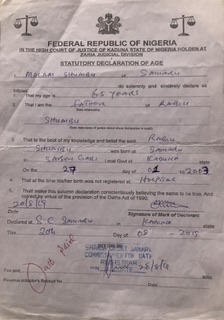 FEDERAL REPUBLIC OF NIGERIA
IN THE HIGH COURT OF JUSTICE OF KADUNA STATE OF NIGERIA HOLDEN AT
ZARIA JUDICIAL DIVISION
STATUTORY DECLARATION OF AGE
I, MALAM SHUAIBU of SAMARU
do solemnly and sincerely declare as
follows:
That my age is 65 YEARS
That I am the FATHER of
SHUAIBU
That to the best of my knowledge and belief the said
SHUAIBU was born at SAMARU
Local Govt of KADUNA state
On the 27 day of 01
That at the time his/her birth was not registered at Hospital
That I make this solemn declaration conscientiously believing the same to be true. And
correct by virtue of the provision of the Oaths Act of 1990.
Date
Signature of Mark of Declarant
Declared at S.C. SAMARU KADUNA
This 20th Day of 08
BEFORE ME
COMMISSIONER FOR OATH
Fee paid
Revenue collector's Receipt No